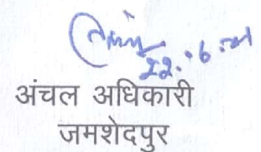 22.6.21
अंचल अधिकारी
जमशेदपुर